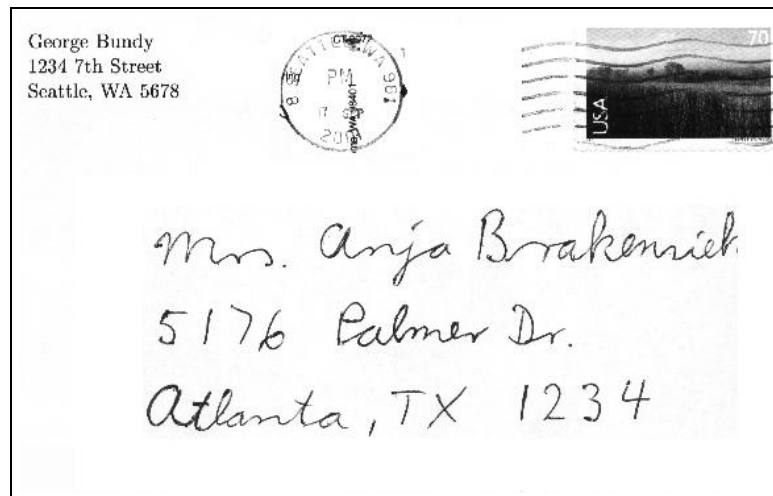 George Bundy
1234 7th Street
Seattle, WA 5678
SEATTLE WA 981
PM
70
USA
Mrs. Anja
5176 Palmer Dr.
Atlanta, TX 1234